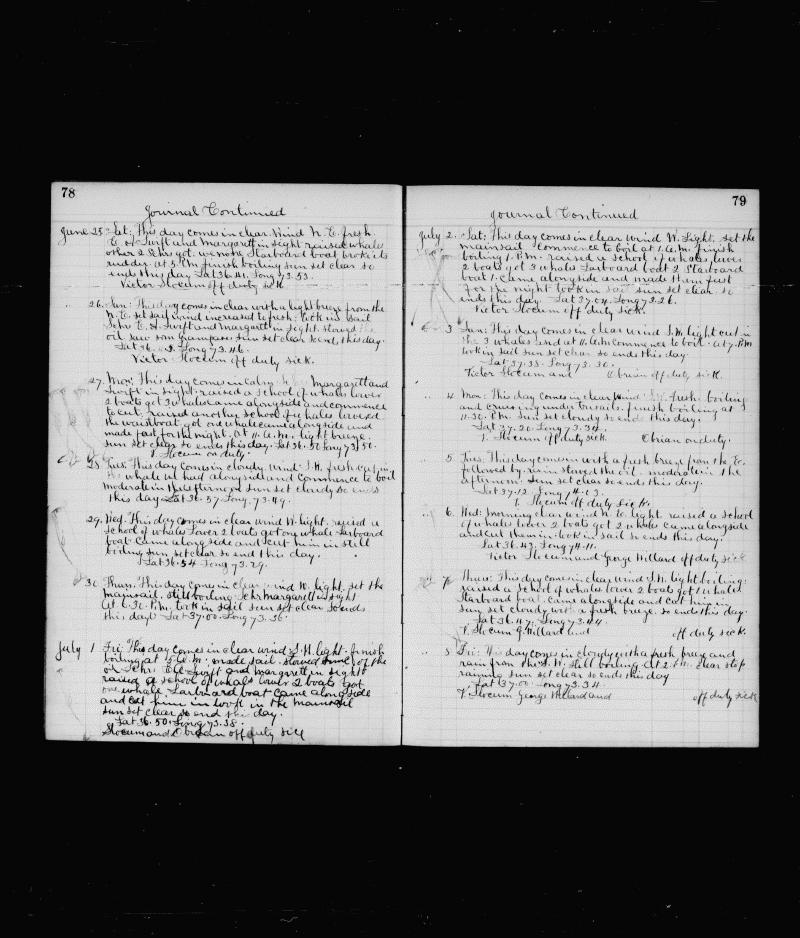 78
Journal Continued
June 25. Sat: This day comes in clear Wind N. E. fresh
E. H. Swift and Margarett in sight raised whales
other 2 Schrs got. we none Starboard boat broke its
rudder. at 5. P.M. finish boiling sun set clear so
ends this day Lat 36.41. Long 73.53.
Victor Slocum off duty sick.
26. Sun: This day comes in clear with a light breeze from the
N. E. set sail wind increased to fresh: took in sail
Schrs E. H. Swift and Margarett in sight. stowed
oil saw som Grampuses sun set clear so ends this day.
Lat 36. Long 73.46.
Victor Slocum off duty sick.
27. Mon: This day comes in calm Margarett and
Swift in sight. raised a school of whales lower
2 boats got 3 whales came alongside and commence
to cut. raised another school of whales lowered
the waistboat got one whale came alongside and
made fast for the night. at 11. A.M. light breeze
sun set clear so ends this day. Lat 36.50 Long 73.50.
V. Slocum on duty.
28. Tues: This day comes in cloudy wind S.W. fresh cut in
the whale we had alongside and commence to boil
moderate in the afternoon sun set cloudy so ends
this day Lat 36.57. Long. 73.49.
29. Wed. This day comes in clear wind W. light. raised a
school of whales lower 2 boats got one whale Larboard
boat. came along side and cut him in still
boiling sun set clear so end this day.
Lat 36.54 Long 73.29.
30. Thurs: This day comes in clear wind W. light. set the
mainsail. still boiling. Schr Margarett in sight
At 6.30. P.M. took in sail sun set clear so ends
this day Lat 37.00. Long. 73.36.
July 1. Fri: This day comes in clear wind S.W. light. finish
boiling at made sail. stowed some of the
oil Schrs Swift and Margarett in sight
raised a school of whales lower 2 boats got
one whale Larboard boat came alongside
and cut him in took in the mainsail
sun set clear so end this day.
Lat 36.50. Long 73.38.
Slocum and Obrian off duty sick
79
Journal Continued
July 2. Sat: This day comes in clear wind W. Light. set the
mainsail commence to boil at 1. A.M. finish
boiling 1. P.M. raised a school of whales lower
2 boats got 3 whales Larboard boat 2 Starboard
boat 1. came alongside and made them fast
for the night. took in sail sun set clear. so
ends this day. Lat 37.04. Long 73.26.
Victor Slocum off duty sick.
3. Sun: This day comes in clear wind S.W. light cut in
the 3 whales and at 11. A.M. commence to boil. at 7. P.M.
took in sail sun set clear so ends this day.
Lat 37.35. Long 73.36.
Victor Slocum and Obrian off duty sick.
4. Mon: This day comes in clear wind S.W. fresh: boiling
and cruising under finish boiling at
11.30. P.M. sun set cloudy so ends this day.
Lat 37.20. Long 73.34.
V. Slocum off duty sick. Obrian on duty.
5. Tues. This day comes in with a fresh breeze from the E.
followed by rain stowed the oil. moderate in the
afternoon. sun set clear so ends this day.
Lat 37.12. Long 74.03.
V. Slocum off duty sick.
6. Wed: Morning clear wind N. E. light. raised a school
of whales lower 2 boats got 2 whales came alongside
and cut them in. took in sail so ends this day.
Lat 36.43. Long 74.11.
Victor Slocum and George Willard off duty sick
7. Thurs: This day comes in clear wind S.W. light boiling:
raised a school of whales lower 2 boats got 1 whale
Starboard boat. came alongside and cut him in
sun set cloudy with a fresh breeze. so ends this day.
Lat 36.47. Long 73.44.
V. Slocum G. Willard and off duty sick.
8. Fri: This day comes in cloudy with a fresh breeze and
rain from the S.W. still boiling. At 2. P.M. clear stop
raining sun set clear so ends this day
Lat 37.00. Long 73.34.
V. Slocum George Willard and off duty sick